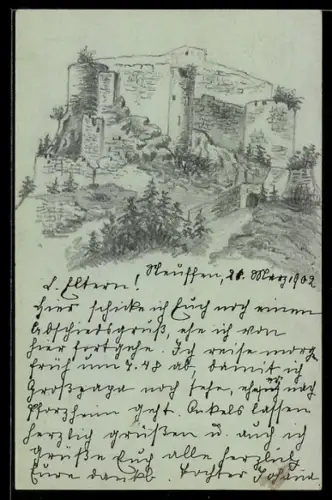 Neuffen, 21. März 1902
L. Eltern!
Hier schicke ich Euch noch einen
Abschiedsgruß, ehe ich von
hier fortgehe. Ich reise morg.
früh um 7.48 ab, damit ich
Großpapa noch sehe, ehe er nach
Pforzheim geht. Onkels lassen
herzlich grüßen u. auch ich
grüße Euch alle herzlich
Eure dankb. Tochter Johanna